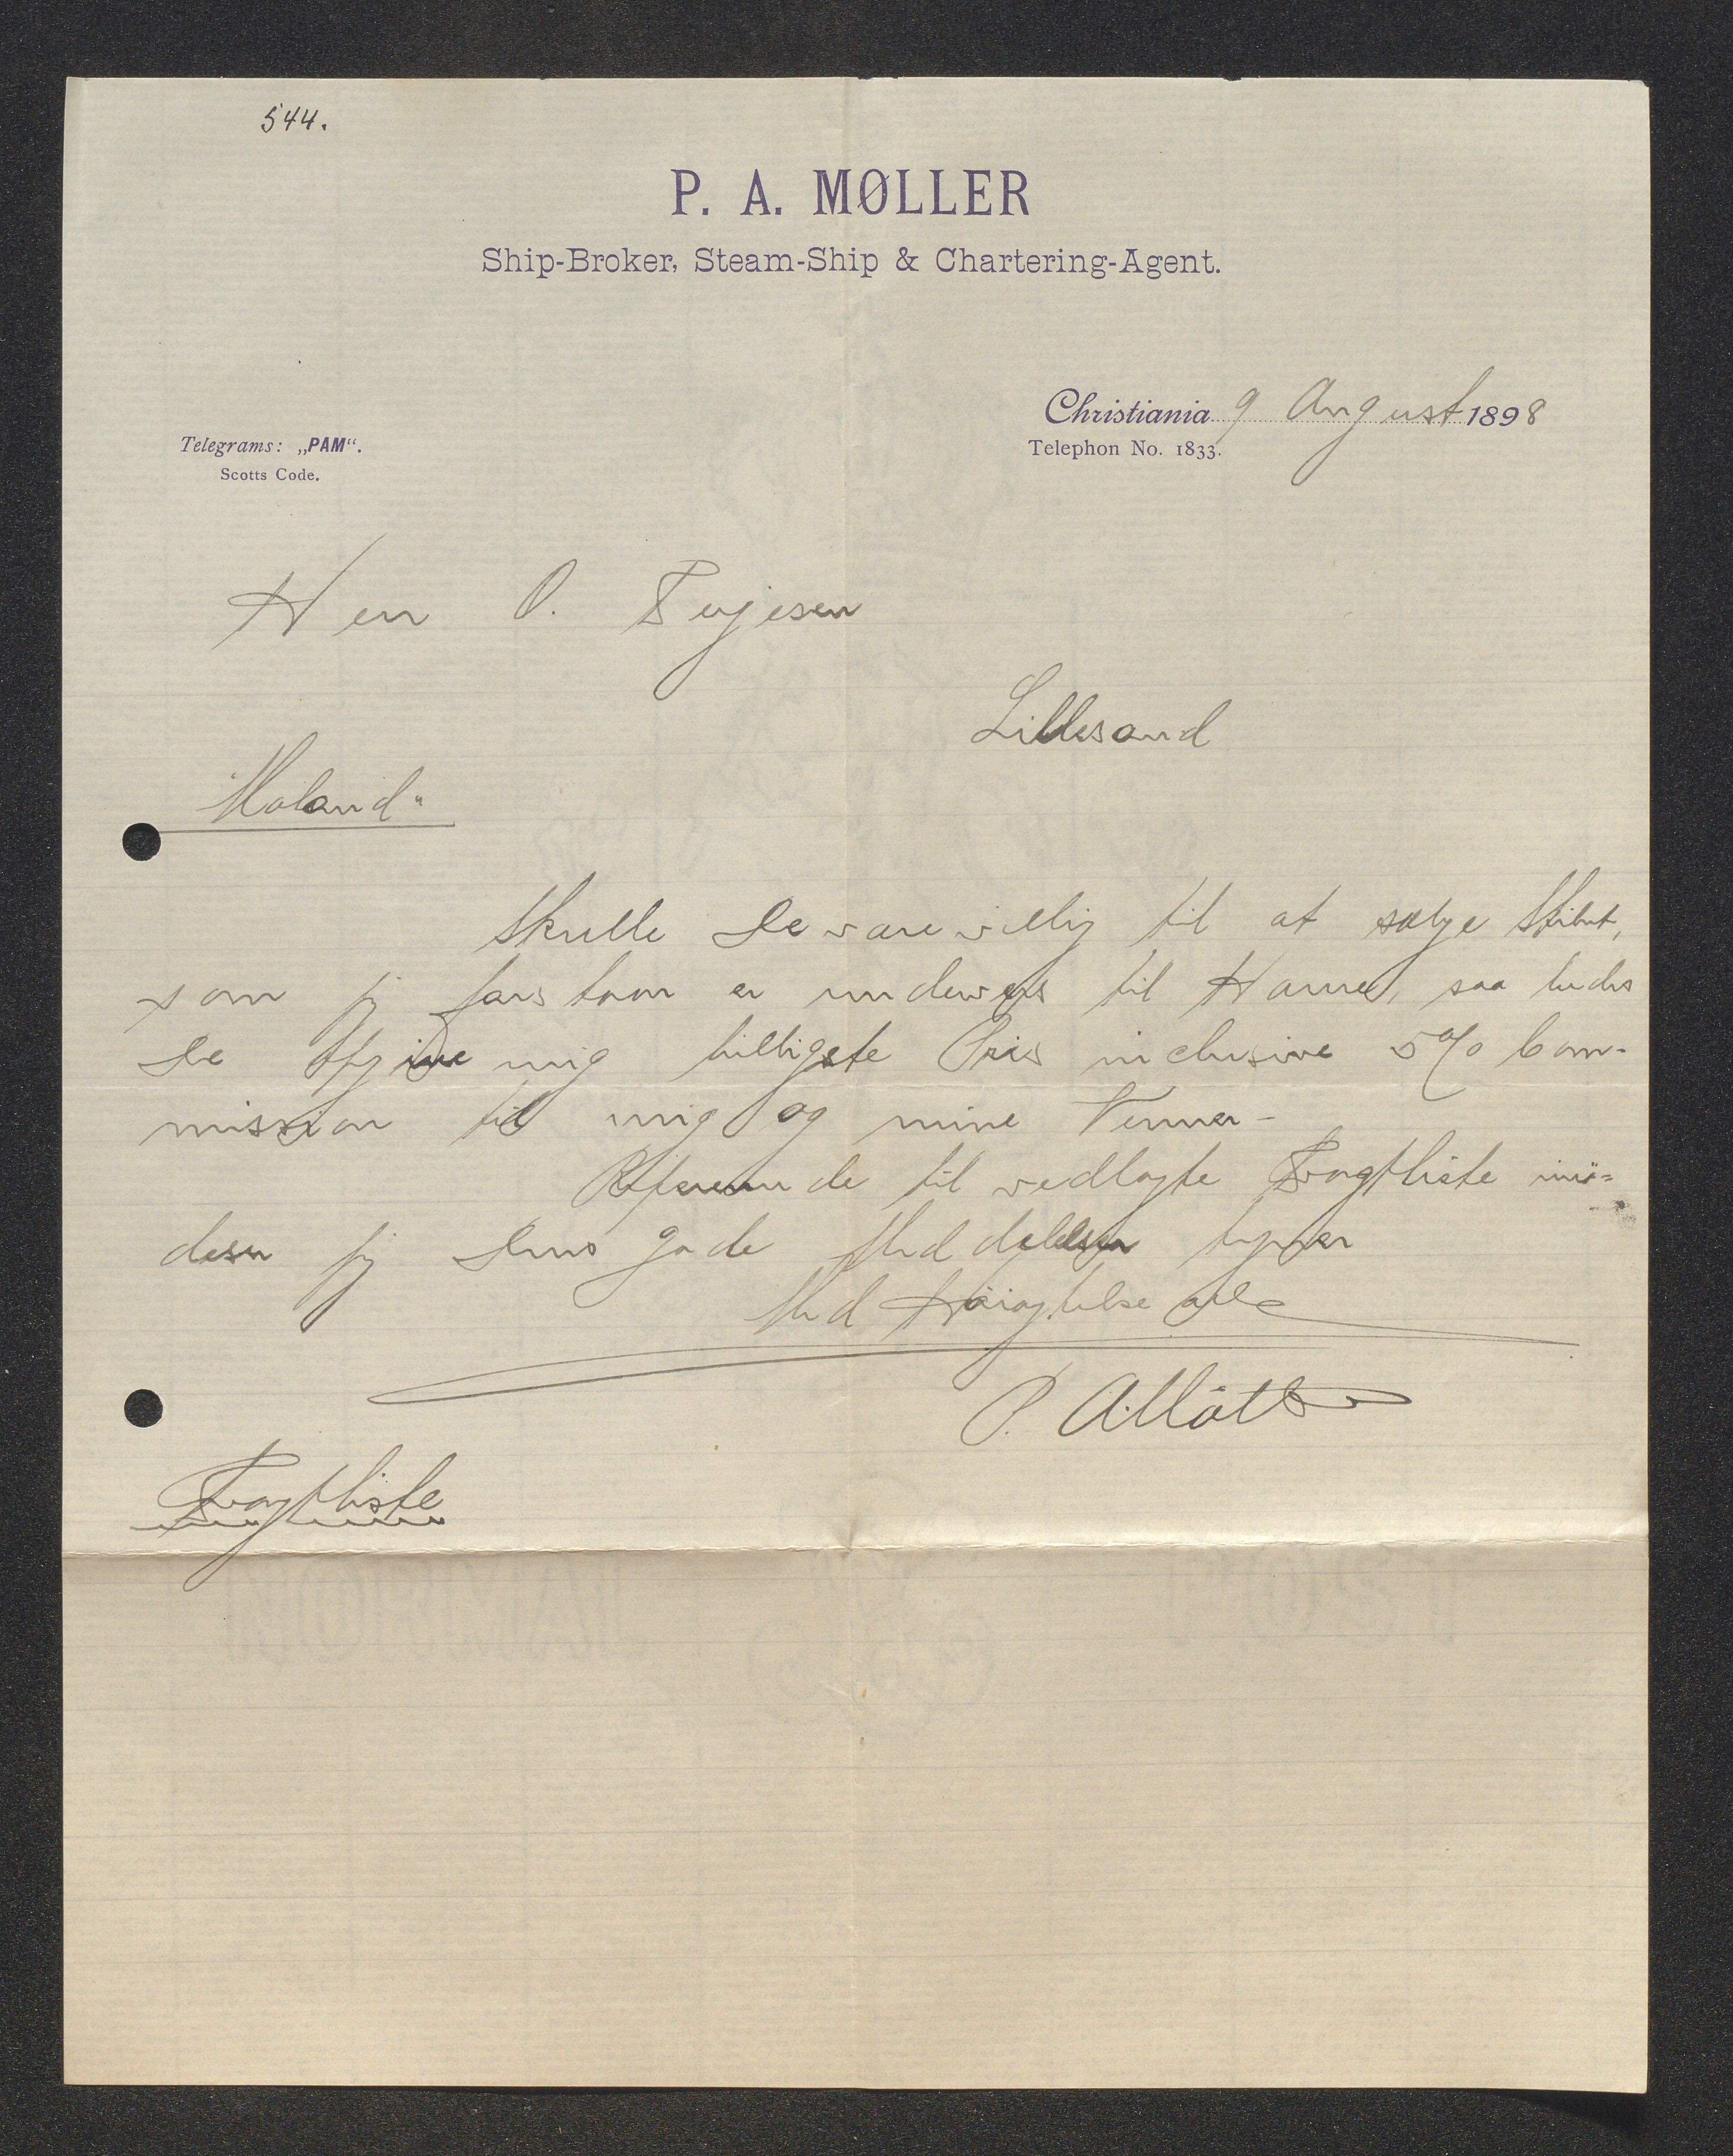 544.
P. A. MØLLER
Ship-Broker, Steam-Ship & Chartering-Agent.
Christiania 9 August 1898
Telephon No. 1833.
Telegrams: „PAM“.
Scotts Code.
Herr O. Terjesen
Lillesand
"Moland"
Skulle De være villig til at sælge Skibet,
som jeg forstaar er underveis til Havre, saa bedes
De opgive mig billigste Pris inclusive 5% Com-
mission til mig og mine Venner -
Refererende til vedlagte Fragtliste imö-
deser jeg Deres gode Meddelelser
Med Höiagtelse
P. A. Möller
Fragtliste